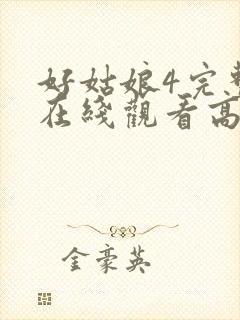 好姑娘4完整
在綫觀看高
金豪英